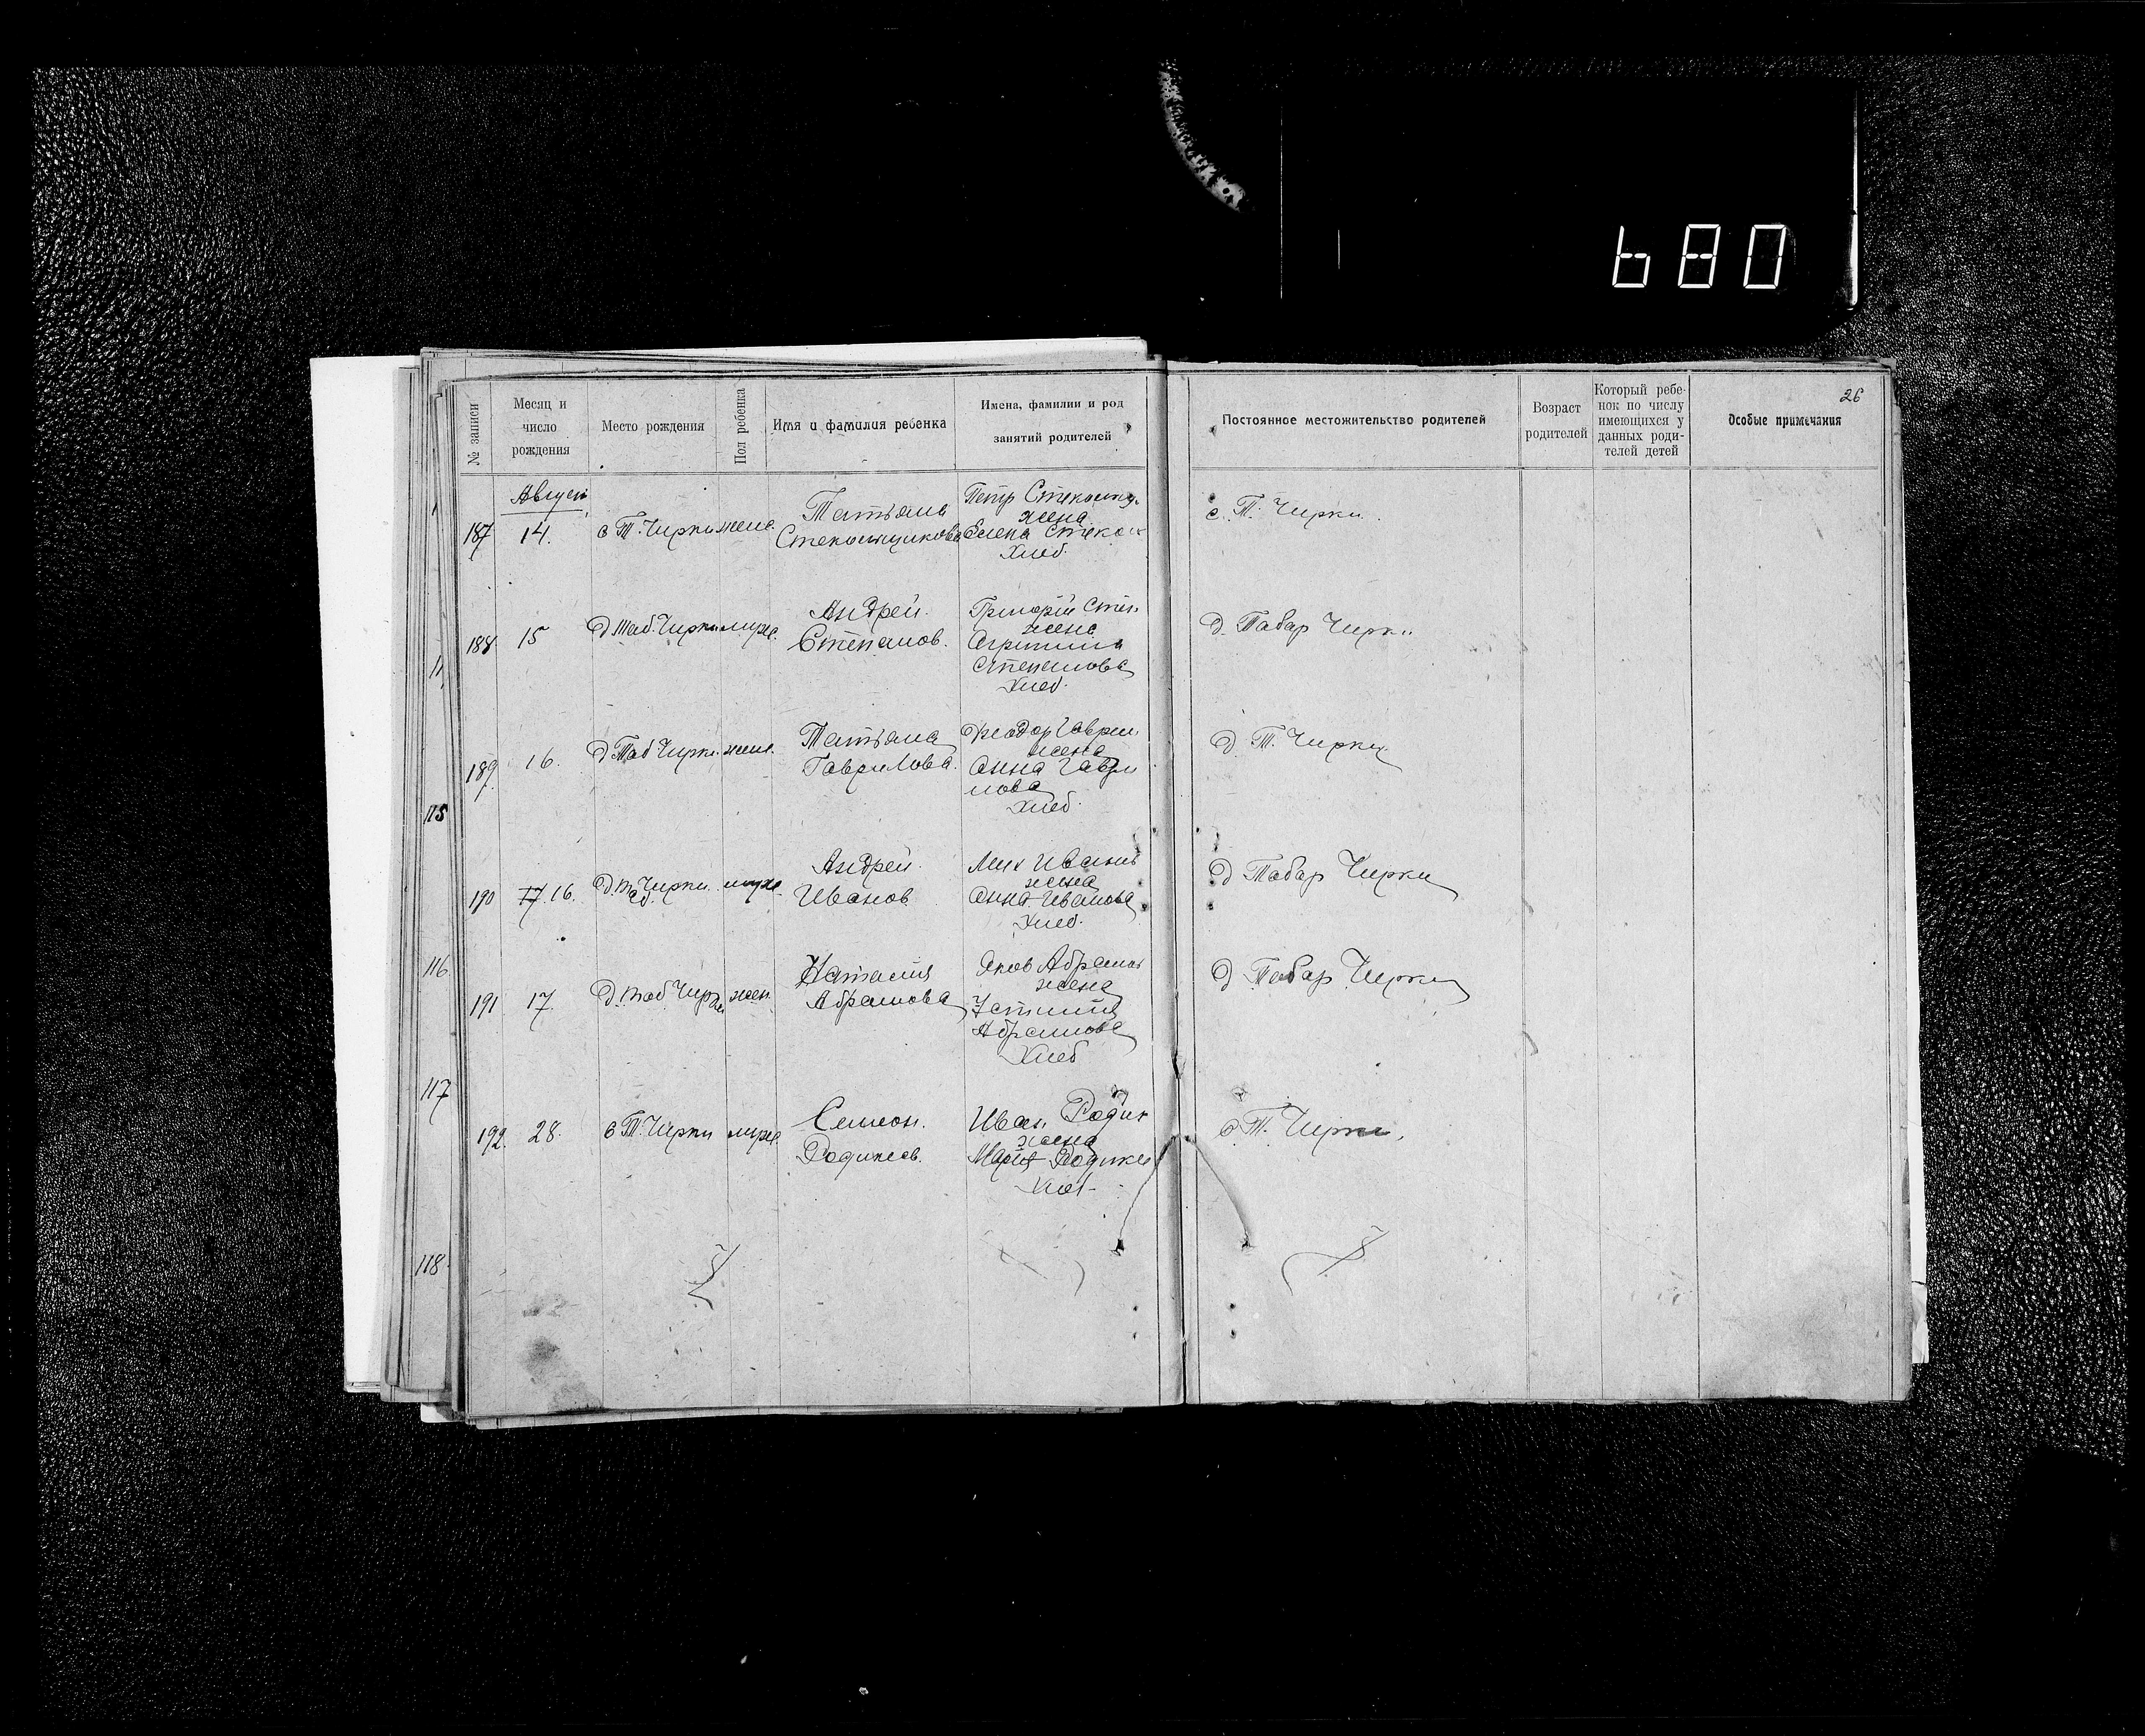 680
26
№ записи
Месяц и число рождения
Место рождения
Пол ребенка
Имя и фамилия ребенка
Имена, фамилии и род занятий родителей
Постоянное местожительство родителей
Возраст родителей
Который ребенок по числу имеющихся у данных родителей детей
Особые примечания
Август
187 14. с Т. Чирки женс.
Татьяна
Стекольщикова
Петр Стекольщ.
жена
Елена Стекол
Хлеб.
с. Т. Чирки.
188 15 д Таб. Чирки мужс.
Андрей.
Степанов.
Григорий Степ.
жена
Степанова
Хлеб.
д. Табар Чирки
189 16. д Таб Чирки женс.
Татьяна
Гаврилова.
Феодор Гаврил
жена
Анна Гаври
лова
Хлеб.
д Т. Чирки
190 17. 16. д. Таб. Чирки мужс.
Андрей.
Иванов
Мих Иванов
жена
Анна Иванова
Хлеб.
д Табар Чирки
191 17. д. Таб Чирки жен.
Наталия
Абрамова
Яков Абрамов
жена
Абрамова
Хлеб
д Табар Чирки
192. 28. с Т. Чирки мужс.
Симеон.
Родионов.
Иван Родион
жена
Мария
с. Т. Чирки.
115
116
117
118